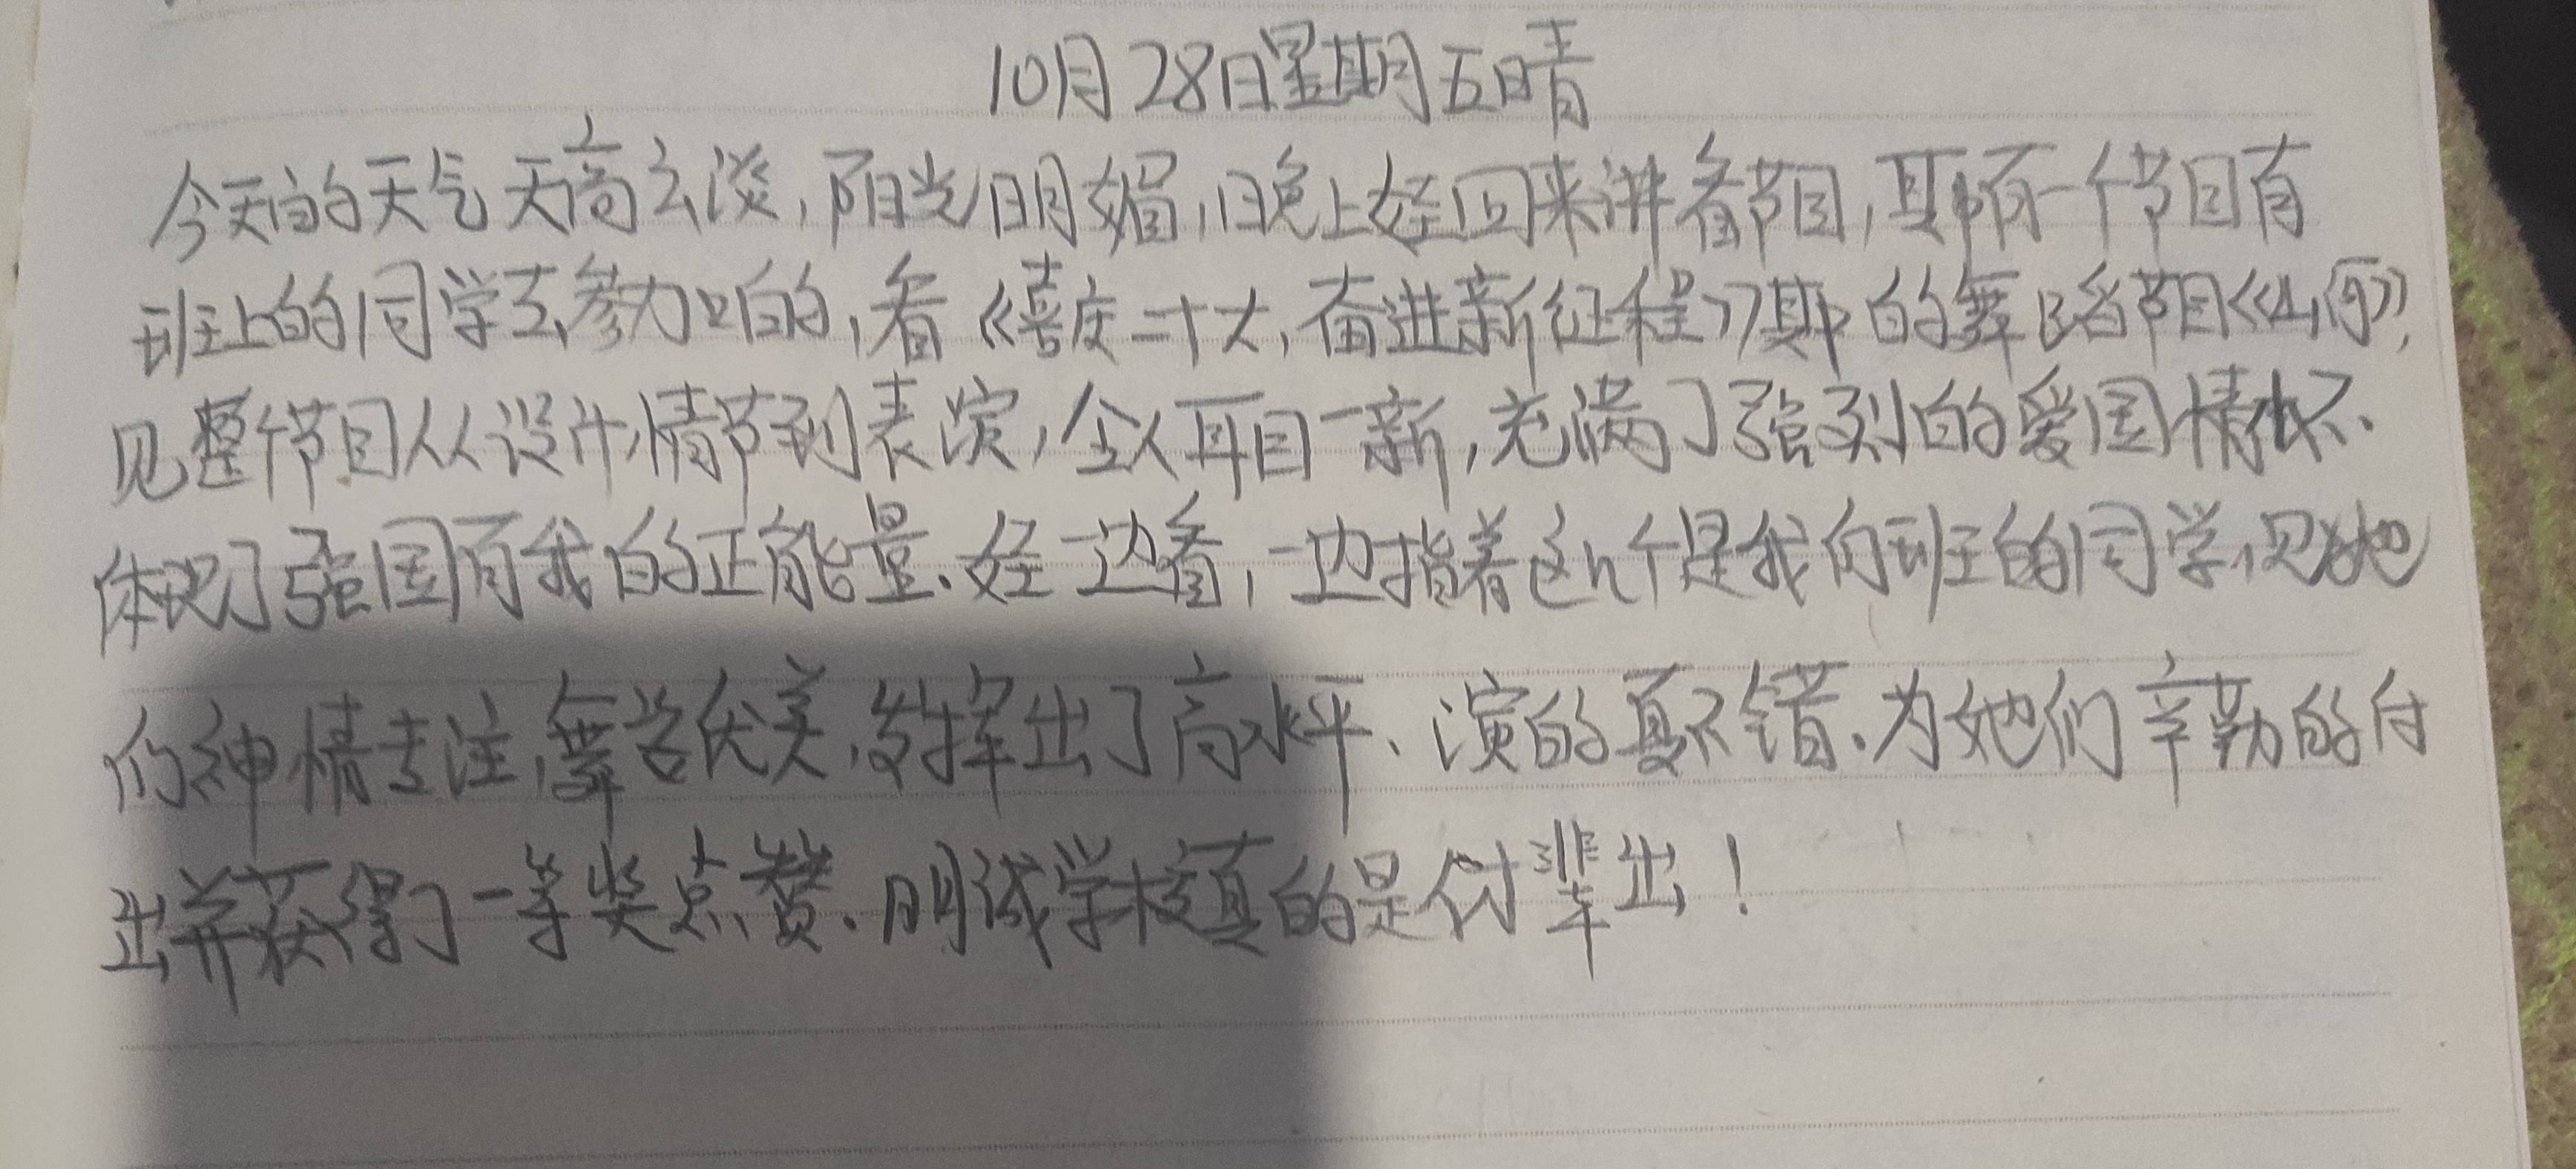 10月28日星期五晴
今天的天气天高云淡,阳光明媚,晚上娃回来讲看节目,其中有一个节目有
班上的同学去参加的,看《喜度二十大,奋进新征程》其中的舞蹈节目《山河》,
见整个节目从设计,情节到表演,令人耳目一新,充满了强烈的爱国情怀、
体现了强国有我的正能量.娃一边看,一边指着这几个是我们班的同学,见她
们神情专注,舞姿优美,发挥出了高水平、演的真不错.为她们辛勤的付
出并获得了一等奖点赞.明诚学校真的是人才辈出!